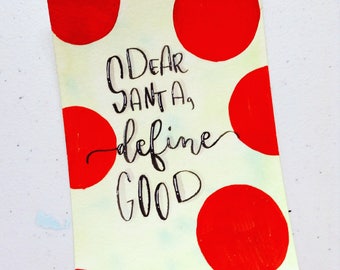 DEAR
SANTA,
define
GOOD